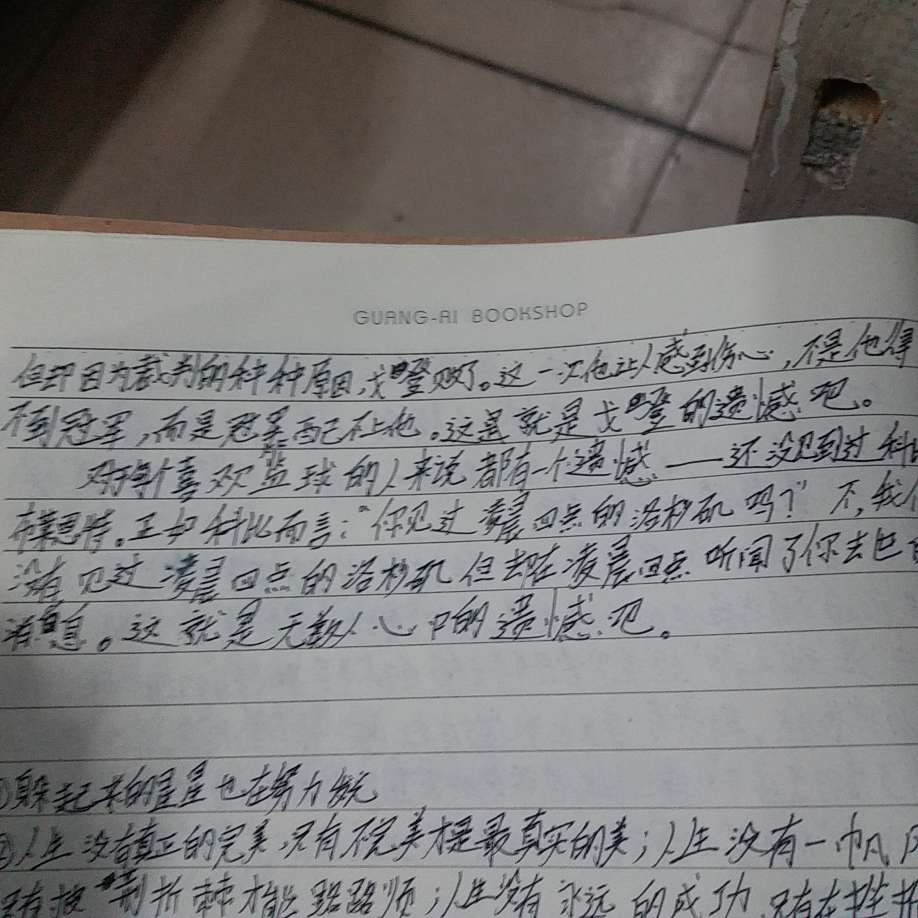 GUANG-AI BOOKSHOP
但却因为裁判的种种原因,戈登败了。这一次他让人感到伤心,不是他得
不到冠军,而是冠军配不上他。这是就是戈登的遗憾吧。
对于每个喜欢篮球的人来说都有一个遗憾——还没见到过科比
布莱恩特。正如科比而言:“你见过凌晨四点的洛杉矶吗?”不,我们
没有见过凌晨四点的洛杉矶但却在凌晨四点听闻了你去世
消息。这就是无数人心中的遗憾吧。
①躲起来的星星也在努力发光
②人生没有真正的完美,只有不完美才是最真实的美;人生没有一帆
只有披荆折棘才能路路顺;人生没有永远的成功 只有在挫折